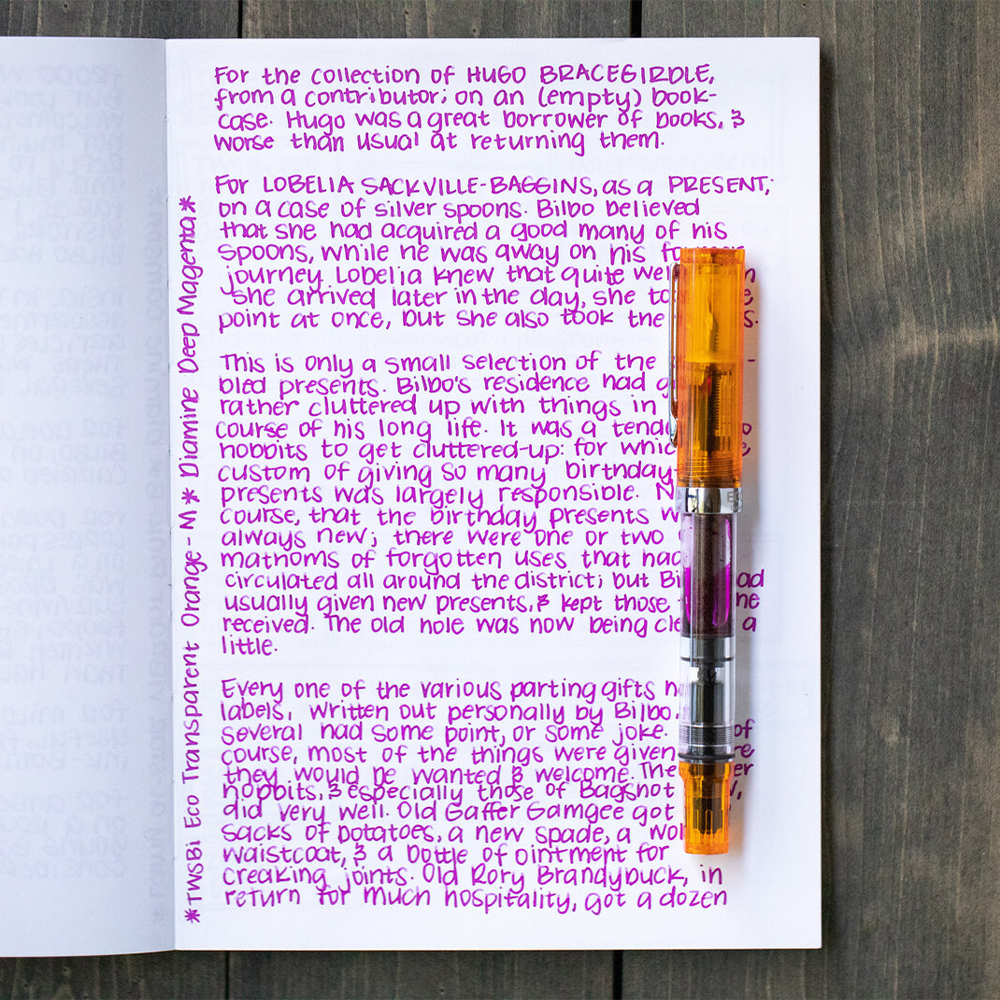 For the collection of HUGO BRACEGIRDLE,
from a contributor; on an (empty) book-
case. Hugo was a great borrower of books, &
worse than usual at returning them.
For LOBELIA SACKVILLE-BAGGINS, as a PRESENT;
on a case of silver spoons. Bilbo believed
that she had acquired a good many of his
spoons, while he was away on his
journey. Lobelia knew that quite
she arrived later in the day, she
point at once, but she also took the
This is only a small selection of the
bled presents. Bilbo's residence had
rather cluttered up with things in
course of his long life. It was a
hobbits to get cluttered-up: for
custom of giving so many birthday
presents was largely responsible.
course, that the birthday presents
always new; there were one or two
mathoms of forgotten uses that had
circulated all around the district; but
usually given new presents, & kept those
received. The old hole was now being a
little.
Every one of the various parting gifts
labels, written out personally by Bilbo.
several had some point, or some joke. of
course, most of the things were given
they would be wanted & welcome. The
hobbits, & especially those of Bagshot
did very well. Old Gaffer Gamgee got
sacks of potatoes, a new spade, a
waistcoat, & a bottle of ointment for
creaking joints. Old Rory Brandybuck, in
return for much hospitality, got a dozen
*TWSBI Eco Transparent Orange - M * Diamine Deep Magenta*